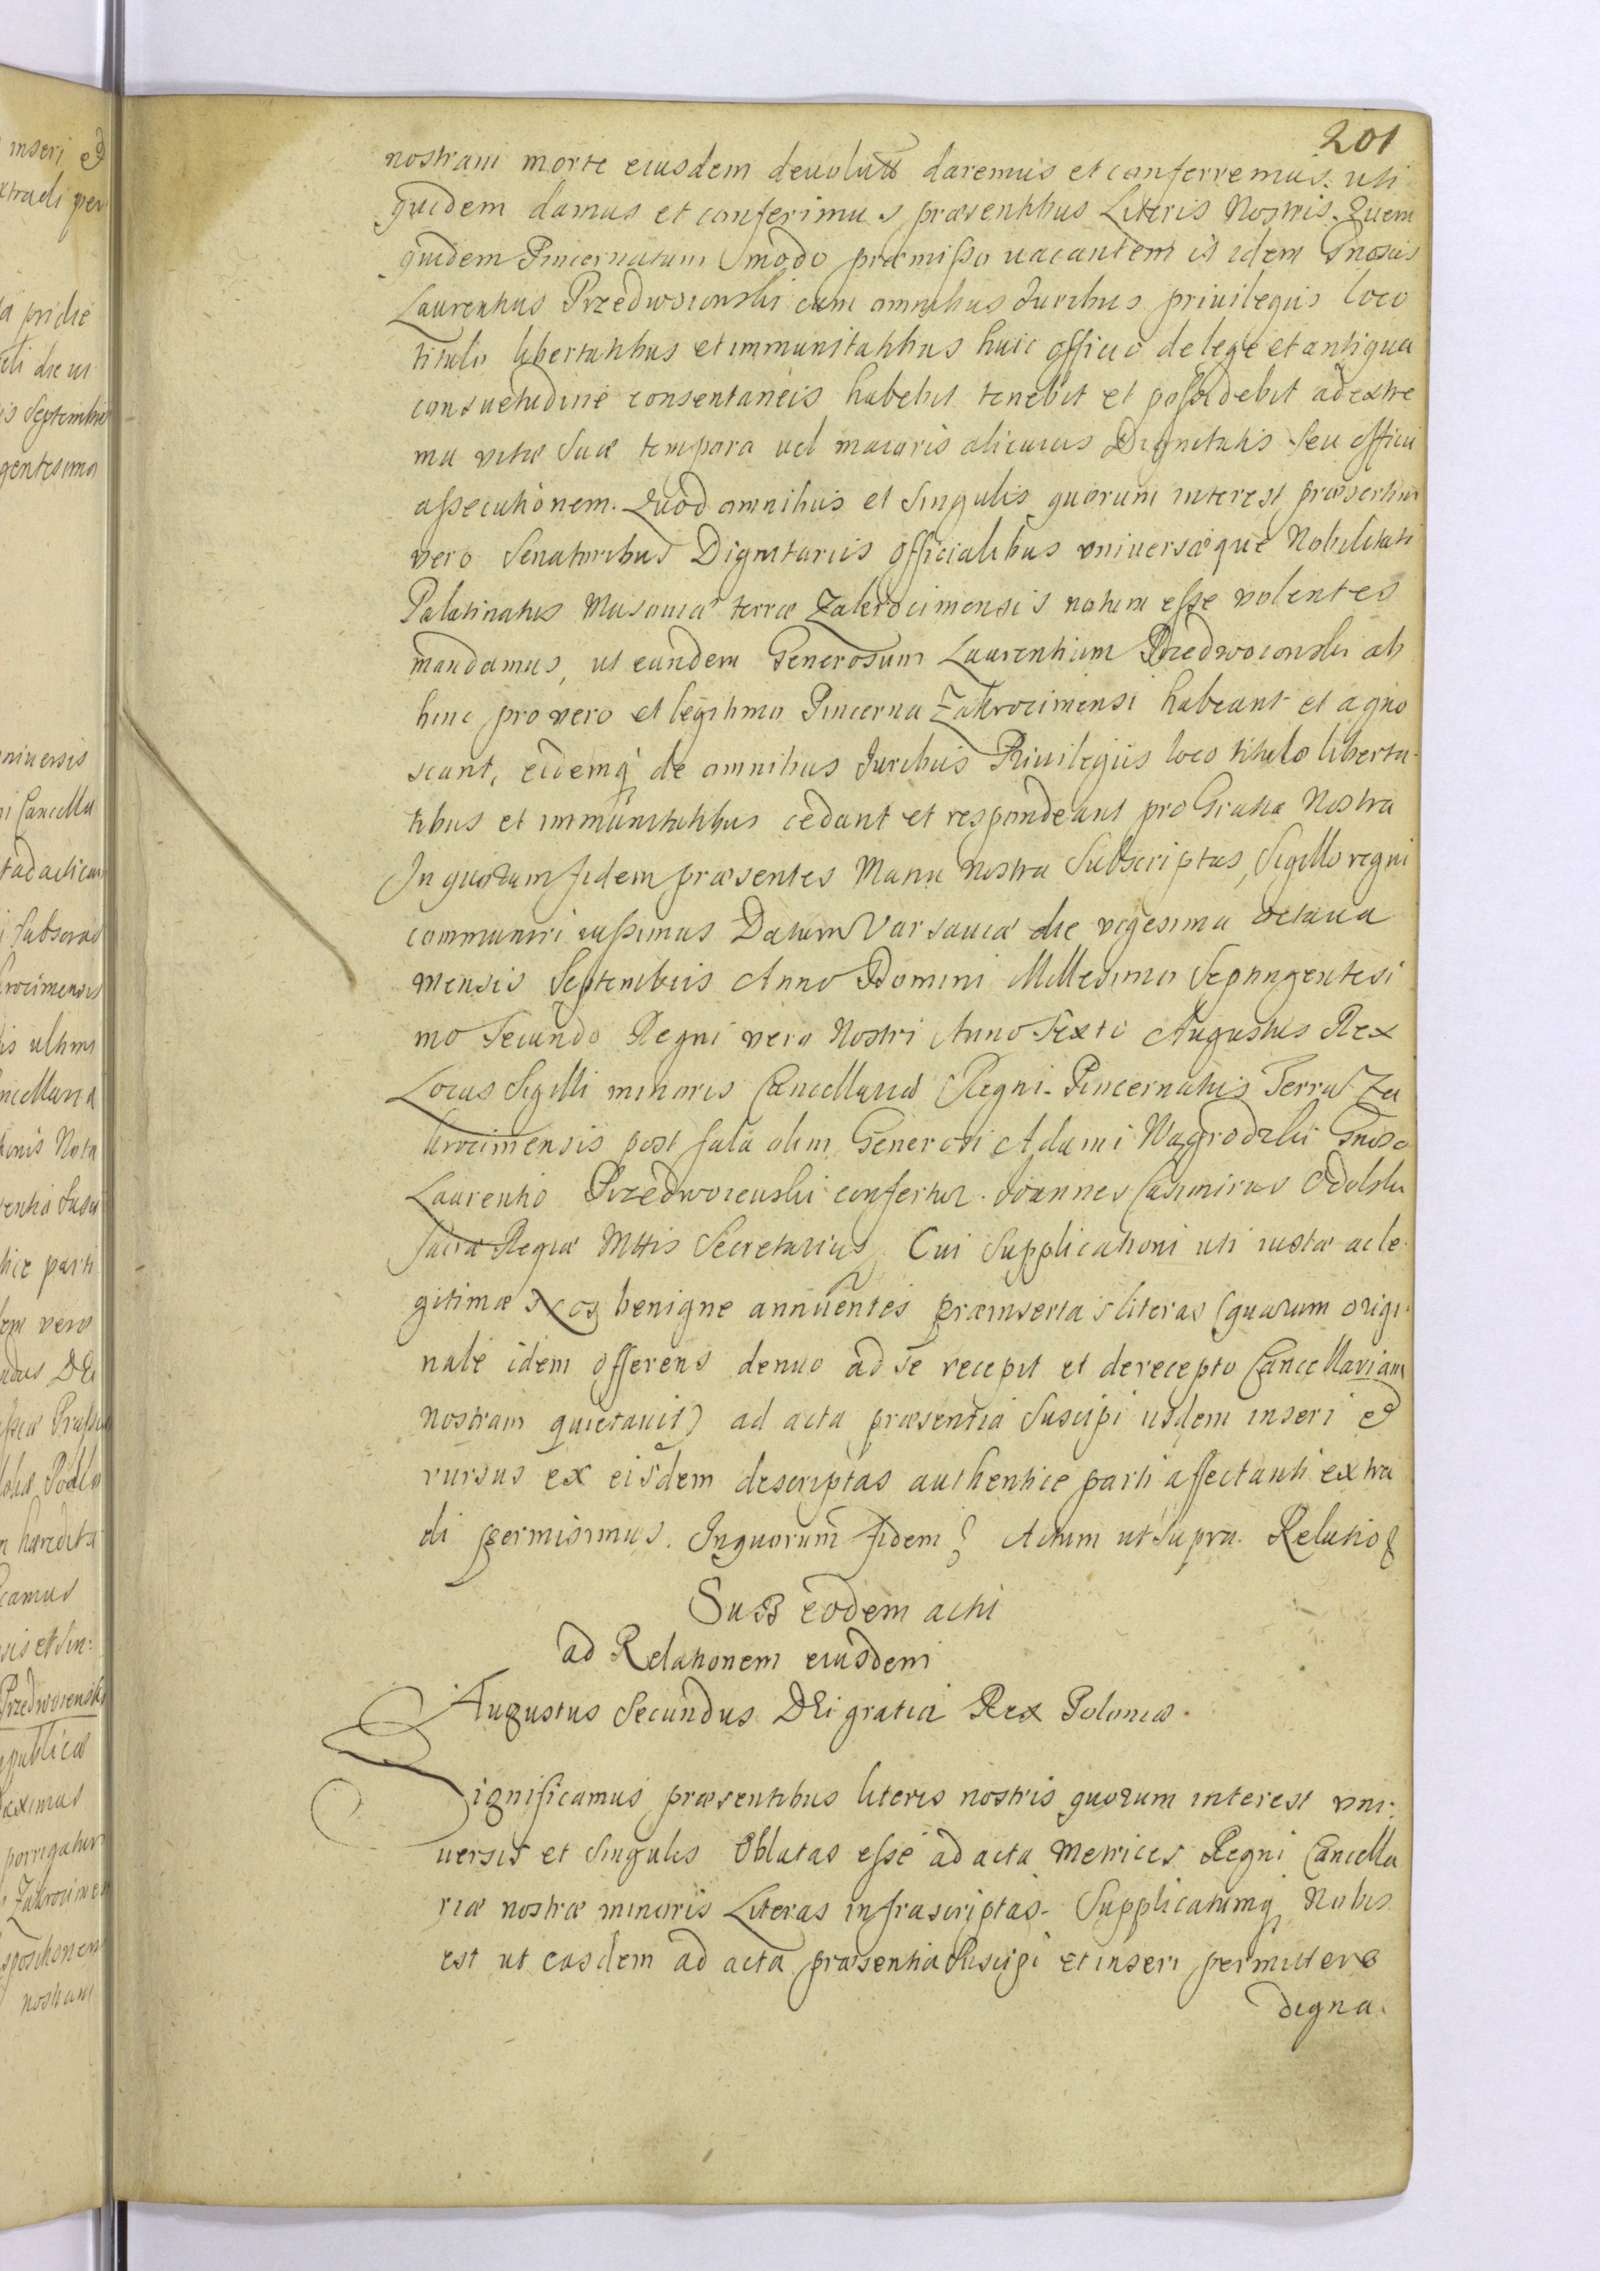 201
nostram morte eiusdem devolutū daremus et conferremus. uti
quidem damus et conferimus præsentibus Literis Nostris. Quem
quidem Pincernatum modo præmisso vacantem is idem Gnosus
Laurentius Przedwoionski cum omnibus Iuribus privilegiis loco
titulo libertatibus et immunitatibus huic officio de lege et antiqua
consuetudine consentaneis habebit tenebit et possidebit ad extre
ma vitæ suæ tempora vel maioris alicuius Dignitatis seu officii
assecutionem. Quod omnibus et singulis quorum interest, præsertim
vero Senatoribus Dignitariis officialibus universæque Nobilitati
Palatinatus Masoviæ terræ Zakrocimensis notum esse volentes
mandamus, ut eundem Generosum Laurentium Przedwoionski ab
hinc pro vero et legitimo Pincerna Zakrocimensi habeant et agno
scant, eidemq de omnibus Iuribus Privilegiis loco titulo liberta-
tibus et immunitatibus cedant et respondeant pro Gratia Nostra
In quorum fidem præsentes Manu Nostra Subscriptas, Sigillo regni
communiri iussimus Datum Varsaviæ die vigesima octava
mensis Septembris Anno Domini Millesimo Septingentesi
mo Secundo Regni vero Nostri Anno Sexto Augustus Rex
Locus Sigilli minoris Cancellariæ Regni. Pincernatus Terræ Za
krocimensis post fata olim Generosi Adami Nagrodzki Gnoso
Laurentio Przedwoienski confertur. Joannes Casimirus Odolski
Sacræ Regiæ Mttis Secretarius. Cui Supplicationi uti iustæ ac le-
gitimæ Nos benigne annuentes præinsertas literas (quarum origi-
nale idem offerens denuo ad se recepit et de recepto Cancellariam
nostram quietavit) ad acta præsentia Suscipi iisdem inseri et
rursus ex eisdem descriptas authentice parti affectanti extra
di permisimus. In quorum fidem Actum ut Supra. Relatio
Sub eodem actu
ad Relationem eiusdem
Augustus Secundus DEi gratia Rex Poloniæ.
Significamus præsentibus literis nostris quorum interest uni-
versis et singulis Oblatas esse ad acta Metrices Regni Cancella
riæ nostræ minoris Literas infrascriptas. Supplicatumq Nobis
est ut easdem ad acta præsentia suscipi et inseri permittere
digna.